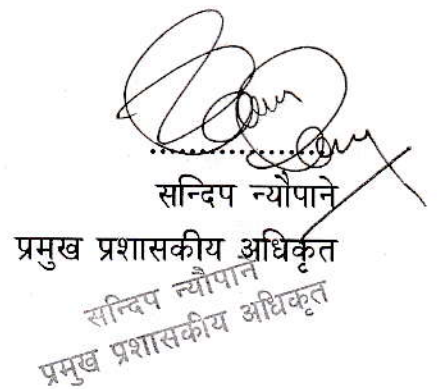 ....................
सन्दिप न्यौपाने
प्रमुख प्रशासकीय अधिकृत
सन्दिप न्यौपाने
प्रमुख प्रशासकीय अधिकृत